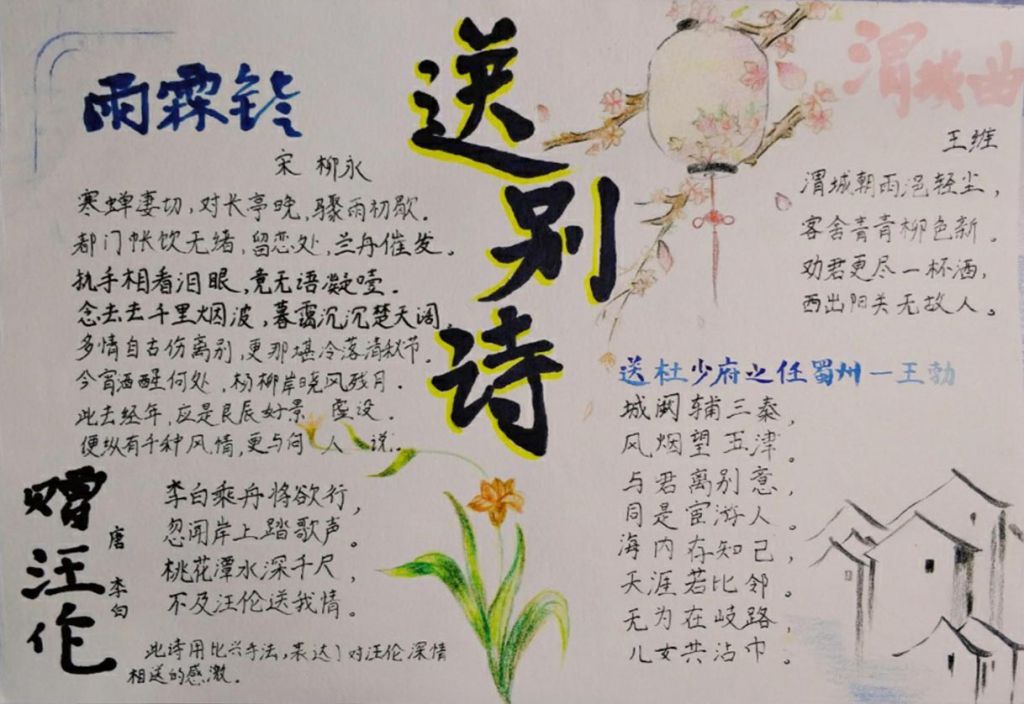 送别诗
雨霖铃
宋 柳永
寒蝉妻切,对长亭晚,骤雨初歇.
都门帐饮无绪,留恋处,兰舟催发。
执手相看泪眼,竟无语凝噎.
念去去千里烟波,暮霭沉沉楚天阔.
多情自古伤离别,更那堪冷落清秋节.
今宵酒醒何处,杨柳岸晓风残月.
此去经年,应是良辰好景 虚设.
便纵有千种风情,更与何 人 说..
赠汪伦
唐 李白
李白乘舟将欲行,
忽闻岸上踏歌声。
桃花潭水深千尺,
不及汪伦送我情。
此诗用比兴手法,表达了对汪伦深情
相送的感激.
渭城曲
王维
渭城朝雨浥轻尘,
客舍青青柳色新。
劝君更尽一杯酒,
西出阳关无故人。
送杜少府之任蜀州—王勃
城阙辅三秦,
风烟望五津。
与君离别意,
同是宦游人。
海内存知己,
天涯若比邻。
无为在岐路,
儿女共沾巾。